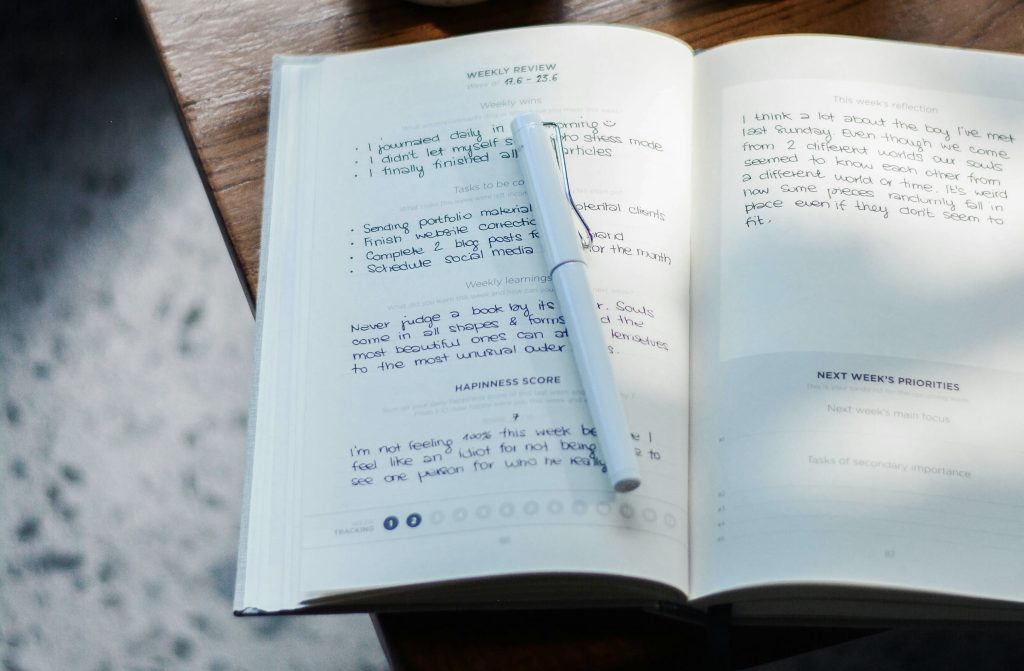 WEEKLY REVIEW
Week of 17.6 - 23.6
Weekly wins
• I journaled daily in
• I didn't let myself stress mode
• I finally finished all articles
Tasks to be
• Sending portfolio material clients
• Finish website
• Complete 2 blog posts
• Schedule social media for the month
Weekly learnings
Never judge a book by its Souls
come in all shapes & forms the
most beautiful ones can
to the most unusual outer
HAPINNESS SCORE
7
I'm not feeling 100% this week I
feel like an idiot for not being to
see one person for who he really
TRACKING 1 2
This week's reflection
I think a lot about the boy I've met
last Sunday. Even though we come
from 2 different worlds our souls
seemed to know each other from
a different world or time. It's weird
how some pieces randumly fall in
place even if they don't seem to
fit.
NEXT WEEK'S PRIORITIES
Next week's main focus
Tasks of secondary importance